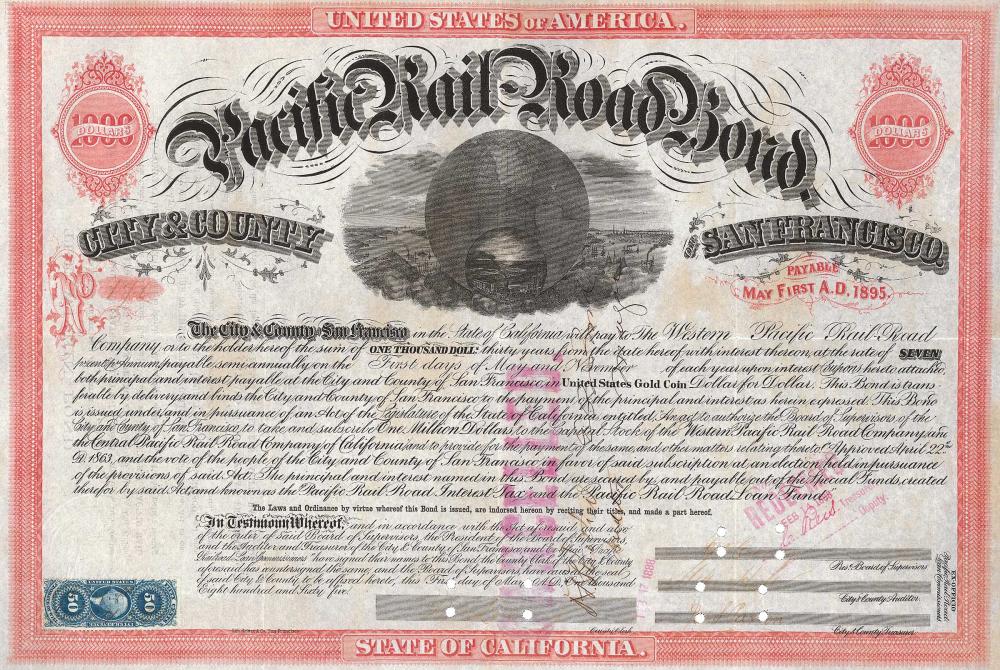 UNITED STATES OF AMERICA.
Pacific Rail-Road Bond,
1000
DOLLARS
1000
DOLLARS
CITY & COUNTY
SAN FRANCISCO.
PAYABLE
MAY FIRST A.D. 1895.
No
The City & County of San Francisco in the State of California will pay to The Western Pacific Rail-Road
Company or to the holder hereof the sum of ONE THOUSAND DOLLS thirty years from the date hereof with interest thereon, at the rate of SEVEN
per cent per annum, payable semi-annually on the First days of May and November of each year upon interest Cupons hereto attached,
both principal and interest payable at the City and County of San Francisco, in United States Gold Coin Dollar for Dollar. This Bond is trans-
ferable by delivery, and binds the City and County of San Francisco to the payment of the principal and interest as herein expressed. This Bond
is issued under, and in pursuance of an Act of the Legislature of the State of California, entitled, An act to authorize the Board of Supervisors of the
City and County of San Francisco, to take and subscribe One Million Dollars to the Capital Stock of the Western Pacific Rail Road Company, and
the Central Pacific Rail Road Company of California and to provide for the payment of the same, and other matters relating thereto. Approved April 22nd
D. 1863, and the vote of the people of the City and County of San Francisco in favor of said subscription at an election held in pursuance
of the provisions of said Act. The principal and interest named in this Bond are secured by, and payable out of the Special Funds created
therefor by said Act, and known as the Pacific Rail Road Interest Tax and the Pacific Rail Road Loan Fund.
The Laws and Ordinance by virtue whereof this Bond is issued, are indorsed hereon by reciting their titles, and made a part hereof.
In Testimony Whereof, and in accordance with the Act aforesaid, and also
of the order of said Board of Supervisors, the President of the Board of Supervisors,
and the Auditor and Treasurer of the City & County of San Francisco, and Ex-Officio Pacific
Railroad Loan Commissioners have signed their names to this Bond, the County Clerk of the City & County
aforesaid has countersigned the same, and the Board of Supervisors, have caused the seal
of said City & County to be affixed hereto, this First day of May A.D. One thousand
Eight hundred and Sixty five.
REDEEMED
FEB
Treasurer
Deputy.
Pres't Board of Supervisors
City & County Auditor.
City & County Treasurer
EX-OFFICIO
Pacific Rail Road
Loan Commissioners
County Clerk
UNITED STATES
50
50
STATE OF CALIFORNIA.